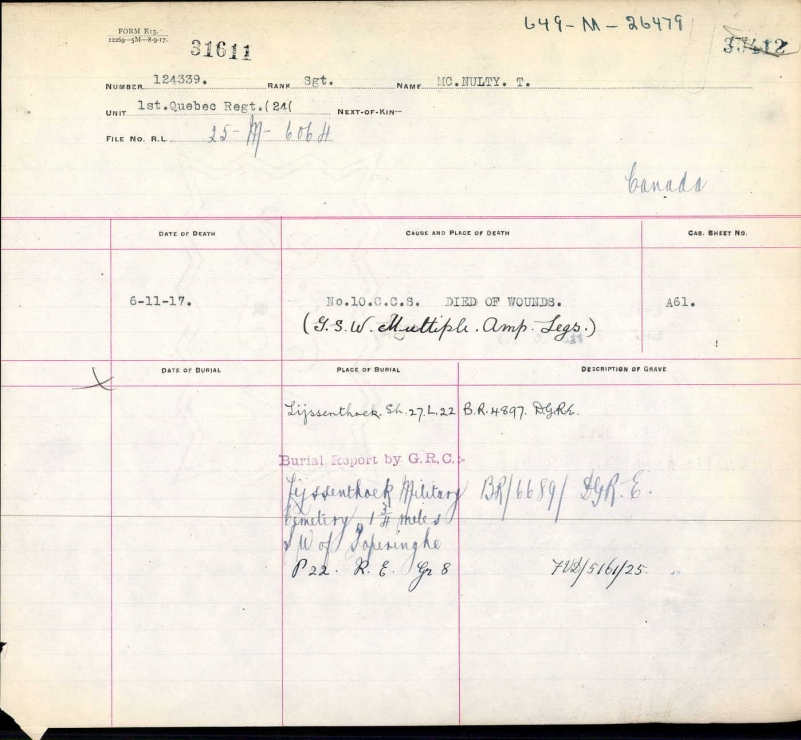 649-M-26479
FORM E13.
12269—5M—8-9-17.
31611
NUMBER 124339. RANK Sgt. NAME MC.NULTY. T.
UNIT 1st.Quebec Regt.(24( NEXT-OF-KIN—
FILE NO. R.L. 25-M-6064
Canada
DATE OF DEATH CAUSE AND PLACE OF DEATH CAS. SHEET NO.
6-11-17. No.10.C.C.S. DIED OF WOUNDS. A61.
(G.S.W. Multiple. Amp. Legs.)
DATE OF BURIAL PLACE OF BURIAL DESCRIPTION OF GRAVE
Lijssenthoek. Sh. 27. L. 22 B.R. 4897. D.G.R.E.
Burial Report by G.R.C:-
Lijssenthoek Military BR/6689/ DGR.E.
Cemetery, 1 3/4 miles
SW of Poperinghe
P 22. R. E. Gr 8 /5161/25.